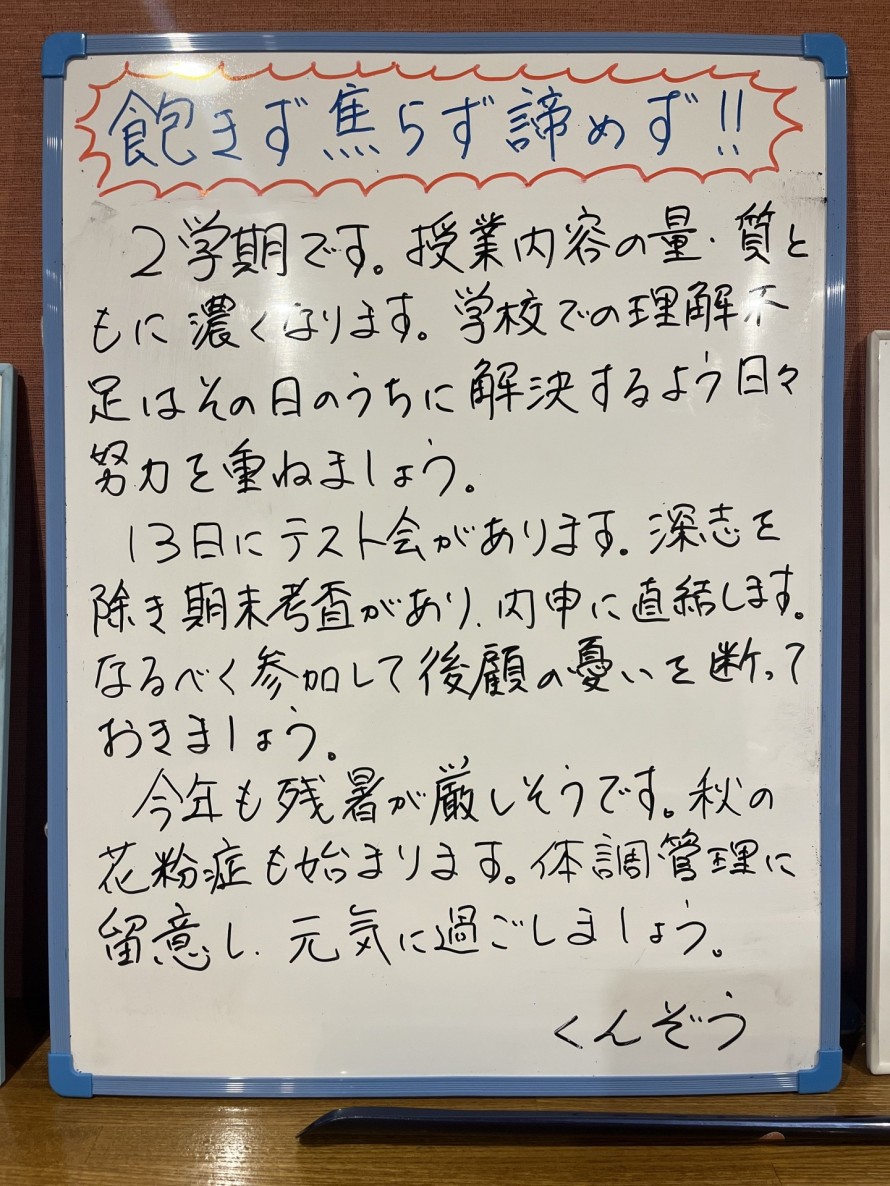 飽きず焦らず諦めず!!
2学期です。授業内容の量・質と
もに濃くなります。学校での理解不
足はその日のうちに解決するよう日々
努力を重ねましょう。
13日にテスト会があります。深志を
除き期末考査があり、内申に直結します。
なるべく参加して後顧の憂いを断って
おきましょう。
今年も残暑が厳しそうです。秋の
花粉症も始まります。体調管理に
留意し、元気に過ごしましょう。
くんぞう